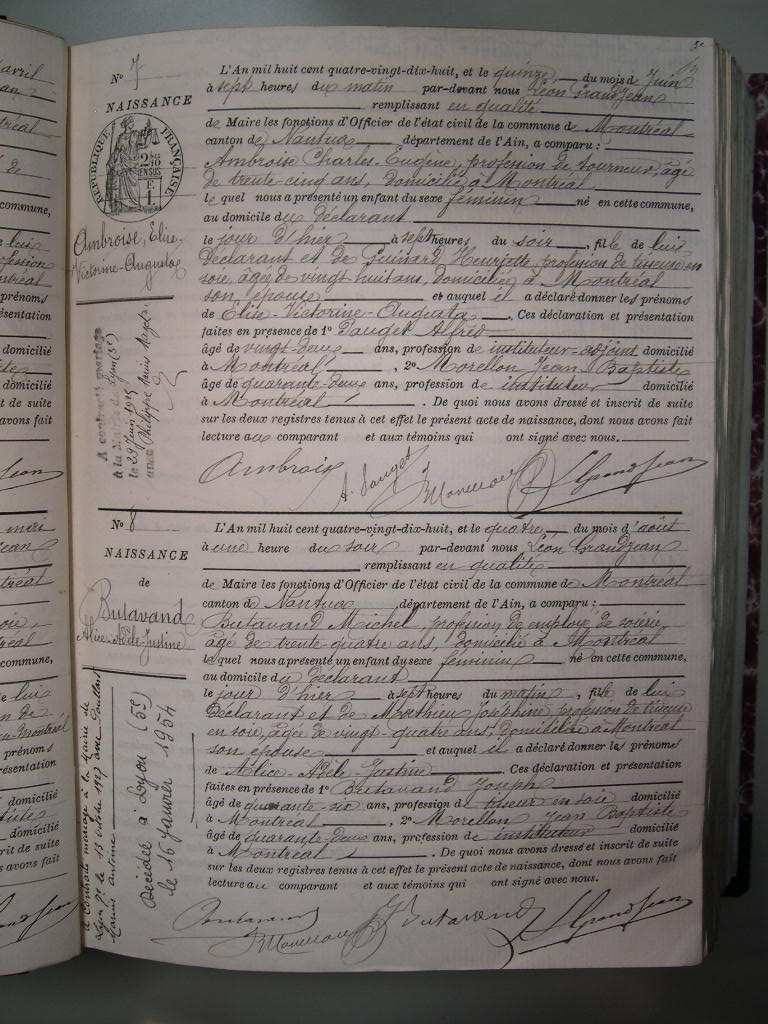 No 7
NAISSANCE
RÉPUBLIQUE FRANÇAISE
Ambroise, Elise
Victorine-Augusta
A contracté mariage
à la Mairie de Lyon (5e)
le 29 Juin 1925
avec Philippe
L'An mil huit cent quatre-vingt-dix-huit, et le quinze du mois de Juin
à sept heures du matin par-devant nous Léon Grandjean
remplissant en qualité
de Maire les fonctions d'Officier de l'état civil de la commune de Montréal
canton de Nantua, département de l'Ain, a comparu :
Ambroise Charles-Eugène, profession de tourneur, âgé
de trente cinq ans, domicilié à Montréal
lequel nous a présenté un enfant du sexe féminin né en cette commune,
au domicile du déclarant
le jour d'hier à sept heures du soir, fille de lui
Déclarant et de Guinard Henriette, profession de tisseuse en
soie, âgée de vingt huit ans, domiciliée à Montréal
son épouse et auquel il a déclaré donner les prénoms
de Elise-Victorine-Augusta. Ces déclaration et présentation
faites en présence de 1° Dauget Alfred
âgé de vingt-deux ans, profession de instituteur-adjoint domicilié
à Montréal, 2° Morellon Jean Baptiste
âgé de quarante-deux ans, profession de instituteur domicilié
à Montréal. De quoi nous avons dressé et inscrit de suite
sur les deux registres tenus à cet effet le présent acte de naissance, dont nous avons fait
lecture au comparant et aux témoins qui ont signé avec nous.
Ambroise A. Dauget Morellon L. Grandjean
No 8
NAISSANCE
de
Butavand
Alice-Adèle-Justine
a Contracté mariage à la Mairie de
Lyon 5e le 15 octobre 1927 avec
Marius Antoine
Décédée à Lyon (5e)
le 16 Janvier 1954
L'An mil huit cent quatre-vingt-dix-huit, et le quatre du mois d'août
à une heure du soir par-devant nous Léon Grandjean
remplissant en qualité
de Maire les fonctions d'Officier de l'état civil de la commune de Montréal
canton de Nantua, département de l'Ain, a comparu :
Butavand Michel, profession de employé de soierie,
âgé de trente-quatre ans, domicilié à Montréal
lequel nous a présenté un enfant du sexe féminin né en cette commune,
au domicile du déclarant
le jour d'hier à sept heures du matin, fille de lui
Déclarant et de Mathieu Joséphine, profession de tisseuse
en soie, âgée de vingt-quatre ans, domiciliée à Montréal
son épouse et auquel il a déclaré donner les prénoms
de Alice-Adèle-Justine. Ces déclaration et présentation
faites en présence de 1° Butavand Joseph
âgé de quarante-six ans, profession de tisseur en soie domicilié
à Montréal, 2° Morellon Jean Baptiste
âgé de quarante-deux ans, profession de instituteur domicilié
à Montréal. De quoi nous avons dressé et inscrit de suite
sur les deux registres tenus à cet effet le présent acte de naissance, dont nous avons fait
lecture au comparant et aux témoins qui ont signé avec nous.
Butavand Morellon J. Butavand L. Grandjean